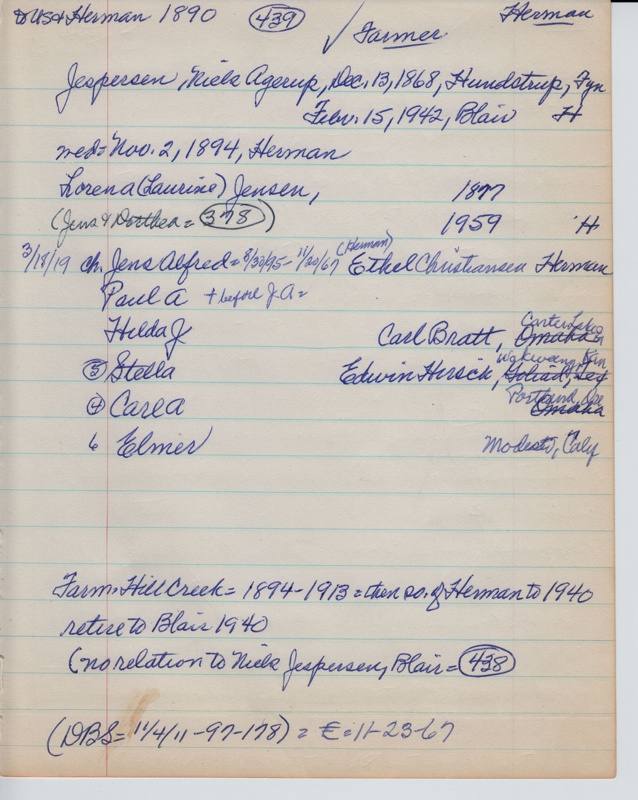 to USA Herman 1890 439 Herman
✓ Farmer
Jespersen, Niels Agerup, Dec. 13, 1868, Hundstrup, Fyn
Febr. 15, 1942, Blair H
med= Nov. 2, 1894, Herman
Lorena (Laurine) Jensen, 1877
(Jens & Dorthea = 378) 1959 H
3/18/19 ch. Jens Alfred = 8/30/95 - 11/20/67 (Herman) Ethel Christiansen Herman
Paul A + before J.A=
Hilda J Carl Bratt, Omaha Carter Lake
③ Stella Edwin Hersick, Goliad, Tex
④ Carla Portland, Ore Omaha
6 Elmer Modesto, Caly
Farm: Hill Creek = 1894-1913 = then so. of Herman to 1940
retire to Blair 1940
(no relation to Niels Jespersen, Blair = 438)
(DBS= 11/4/11-97-178) = E=11-23-67